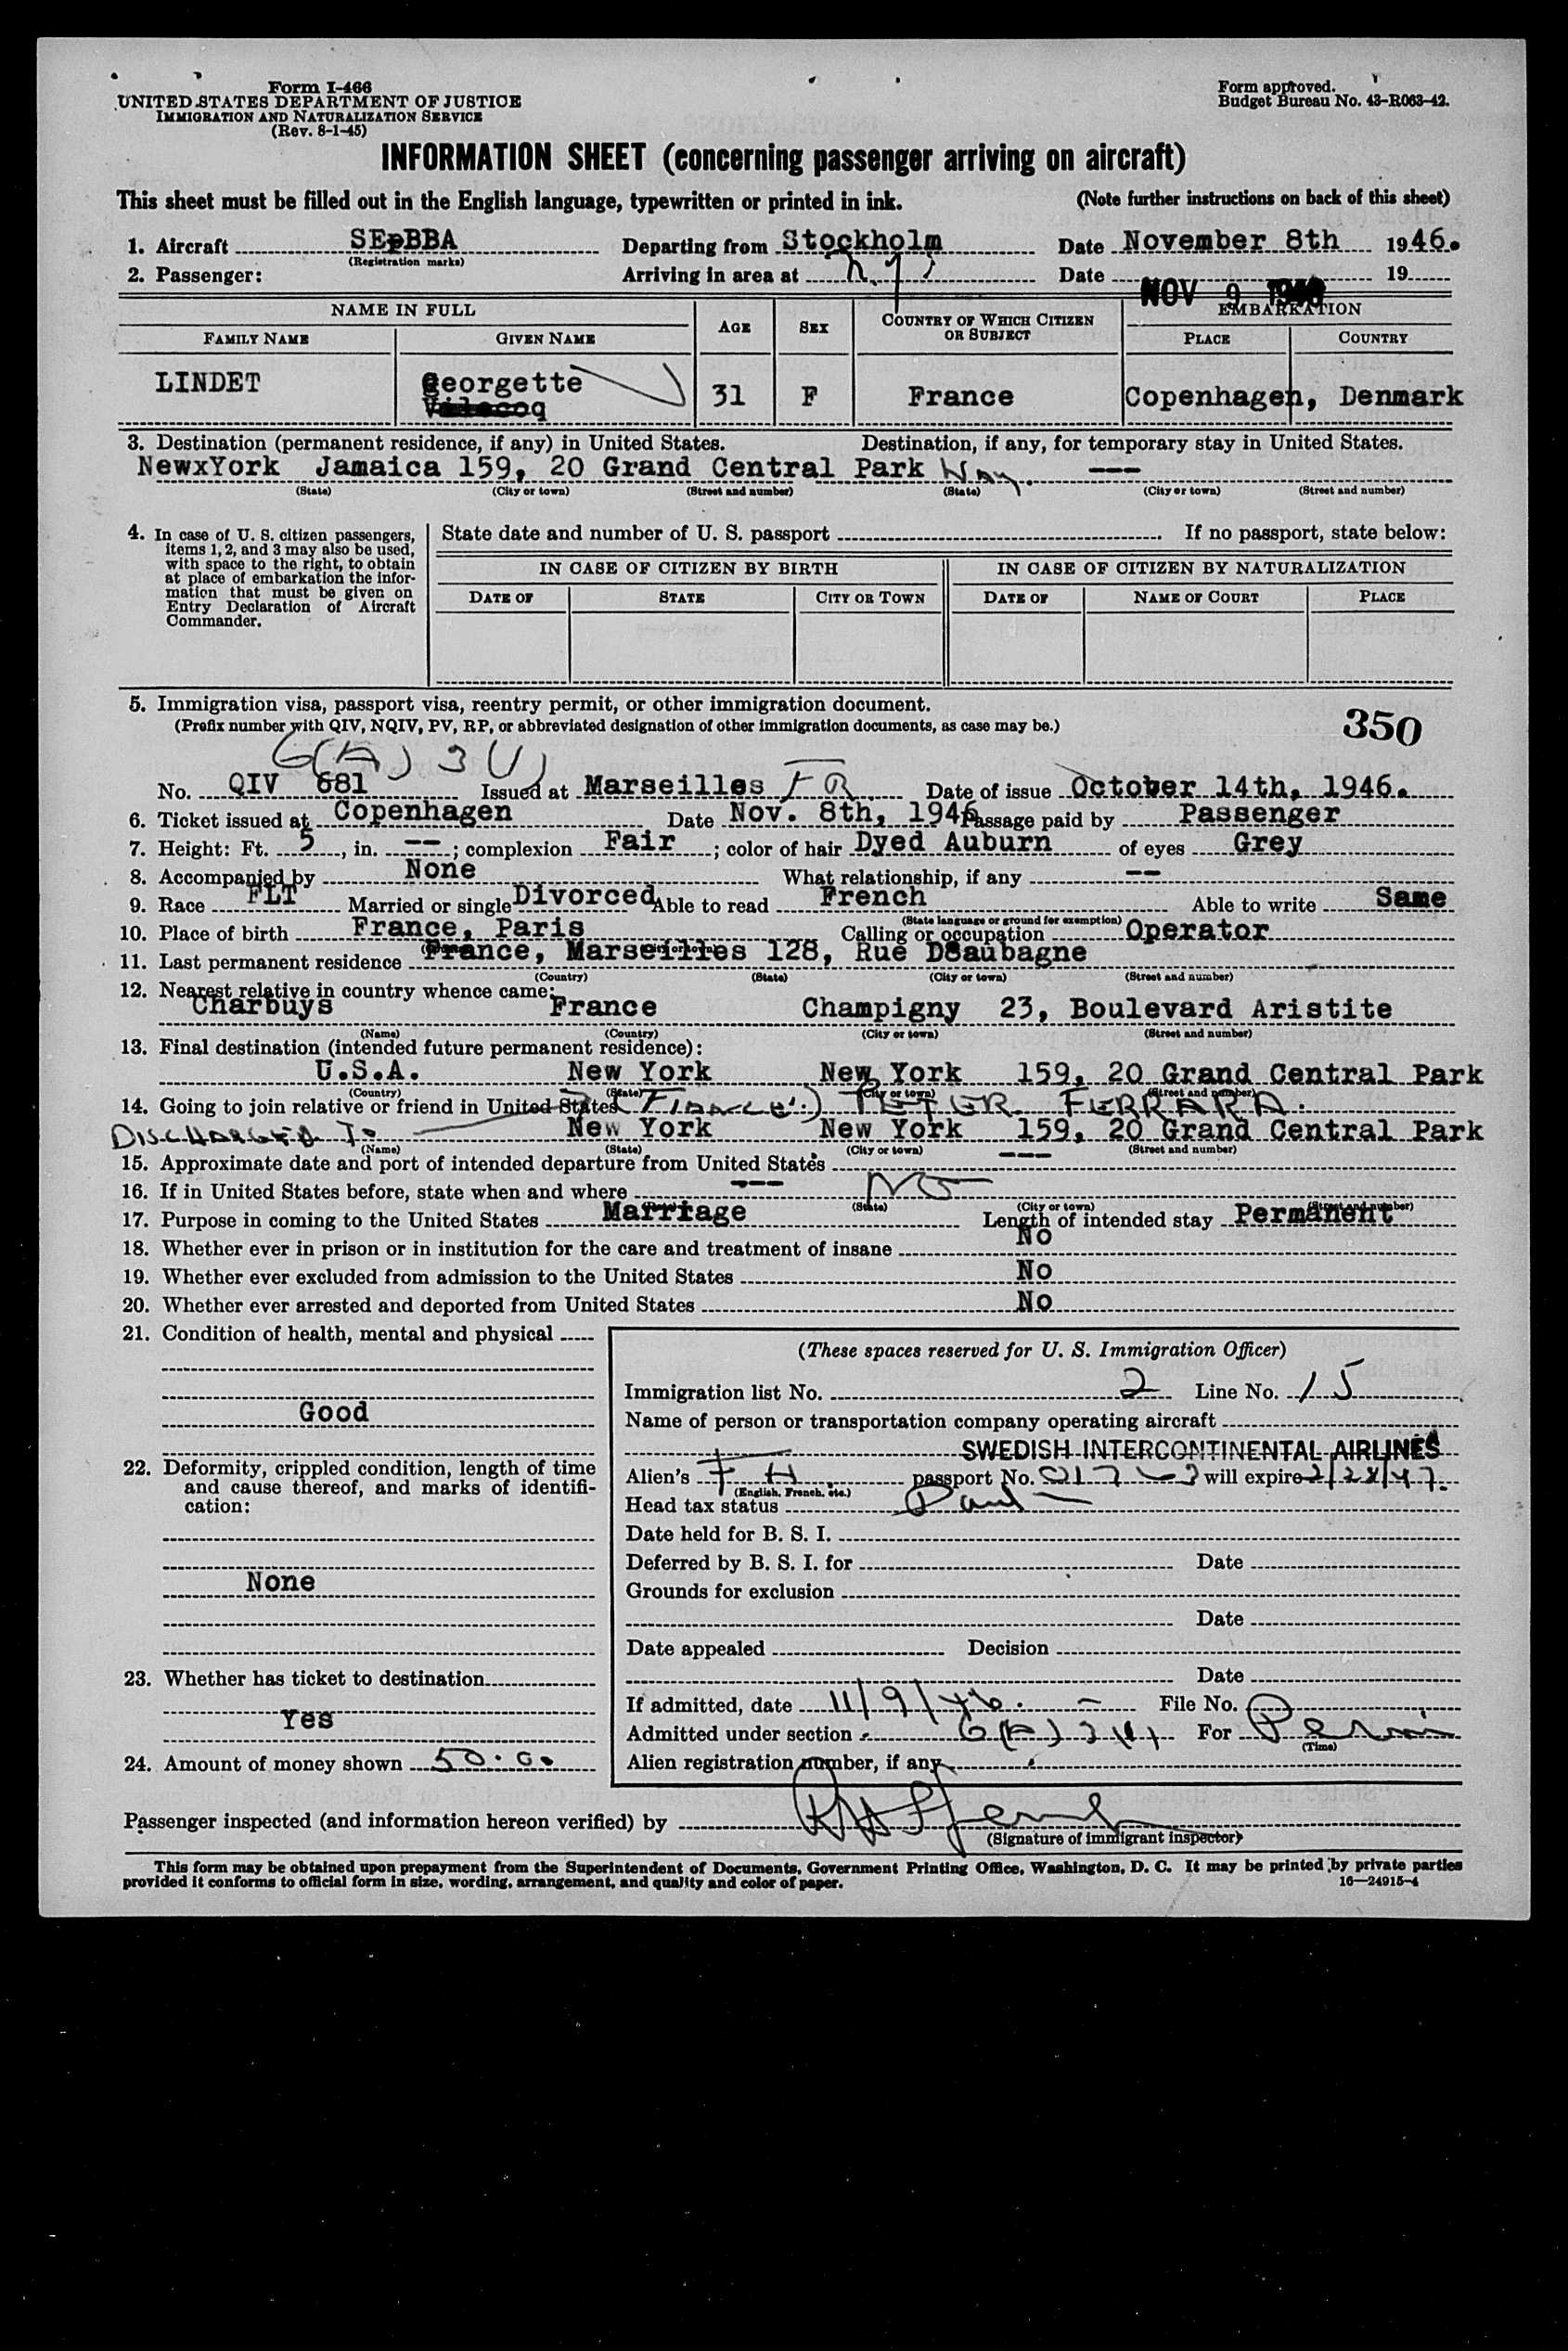 Form I-466
UNITED STATES DEPARTMENT OF JUSTICE
IMMIGRATION AND NATURALIZATION SERVICE
(Rev. 8-1-45)
Form approved.
Budget Bureau No. 43-R063-42.
INFORMATION SHEET (concerning passenger arriving on aircraft)
This sheet must be filled out in the English language, typewritten or printed in ink. (Note further instructions on back of this sheet)
1. Aircraft SEpBBA Departing from Stockholm Date November 8th 1946.
(Registration marks)
2. Passenger: Arriving in area at N.Y. Date NOV 9 1946 19
NAME IN FULL AGE SEX COUNTRY OF WHICH CITIZEN OR SUBJECT EMBARKATION
FAMILY NAME GIVEN NAME PLACE COUNTRY
LINDET Georgette 31 F France Copenhagen, Denmark
3. Destination (permanent residence, if any) in United States. Destination, if any, for temporary stay in United States.
NewxYork Jamaica 159, 20 Grand Central Park Way. ---
(State) (City or town) (Street and number) (State) (City or town) (Street and number)
4. In case of U. S. citizen passengers, items 1, 2, and 3 may also be used, with space to the right, to obtain at place of embarkation the information that must be given on Entry Declaration of Aircraft Commander.
State date and number of U. S. passport If no passport, state below:
IN CASE OF CITIZEN BY BIRTH IN CASE OF CITIZEN BY NATURALIZATION
DATE OF STATE CITY OR TOWN DATE OF NAME OF COURT PLACE
5. Immigration visa, passport visa, reentry permit, or other immigration document.
(Prefix number with QIV, NQIV, PV, RP, or abbreviated designation of other immigration documents, as case may be.)
350
6(A) 3(1)
No. QIV 681 Issued at Marseilles FR Date of issue October 14th, 1946.
6. Ticket issued at Copenhagen Date Nov. 8th, 1946 Passage paid by Passenger
7. Height: Ft. 5, in. --; complexion Fair; color of hair Dyed Auburn of eyes Grey
8. Accompanied by None What relationship, if any --
9. Race FLT Married or single Divorced Able to read French Able to write Same
(State language or ground for exemption)
10. Place of birth France, Paris Calling or occupation Operator
11. Last permanent residence France, Marseilles 128, Rue D8aubagne
(Country) (State) (City or town) (Street and number)
12. Nearest relative in country whence came:
Charbuys France Champigny 23, Boulevard Aristite
(Name) (Country) (City or town) (Street and number)
13. Final destination (intended future permanent residence):
U.S.A. New York New York 159, 20 Grand Central Park
(Country) (State) (City or town) (Street and number)
14. Going to join relative or friend in United States (FIANCE.) PETER FERRARA.
DISCHARGED To New York New York 159, 20 Grand Central Park
(Name) (State) (City or town) (Street and number)
15. Approximate date and port of intended departure from United States ---
16. If in United States before, state when and where --- NO
(State) (City or town) (Street and number)
17. Purpose in coming to the United States Marriage Length of intended stay Permanent
18. Whether ever in prison or in institution for the care and treatment of insane No
19. Whether ever excluded from admission to the United States No
20. Whether ever arrested and deported from United States No
21. Condition of health, mental and physical
Good
22. Deformity, crippled condition, length of time and cause thereof, and marks of identification:
None
23. Whether has ticket to destination
Yes
24. Amount of money shown 50.00
(These spaces reserved for U. S. Immigration Officer)
Immigration list No. 2 Line No. 15
Name of person or transportation company operating aircraft
SWEDISH INTERCONTINENTAL AIRLINES
Alien's passport No. will expire 2/28/47.
(English, French, etc.)
Head tax status Paid
Date held for B. S. I.
Deferred by B. S. I. for Date
Grounds for exclusion
Date
Date appealed Decision
Date
If admitted, date 11/9/46. File No.
Admitted under section 6(A) 3(1) For Perm
(Time)
Alien registration number, if any
Passenger inspected (and information hereon verified) by
(Signature of immigrant inspector)
This form may be obtained upon prepayment from the Superintendent of Documents, Government Printing Office, Washington, D. C. It may be printed by private parties
provided it conforms to official form in size, wording, arrangement, and quality and color of paper. 16—24915-4